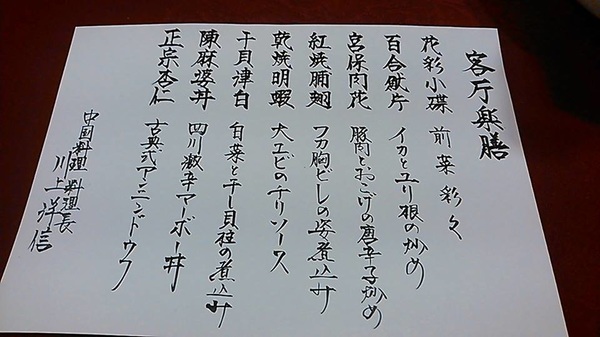 客庁楽膳
花彩小碟 前菜彩々
百合魷片 イカとユリ根の炒め
宮保肉花 豚肉とおこげの唐辛子炒め
紅焼脯翅 フカ胸ビレの姿煮込み
乾焼明蝦 大エビのチリソース
干貝津白 白菜と干し貝柱の煮込み
陳麻婆丼 四川激辛マーボー丼
正宗杏仁 古典式アンニンドウフ
中国料理 料理長
川上洋信